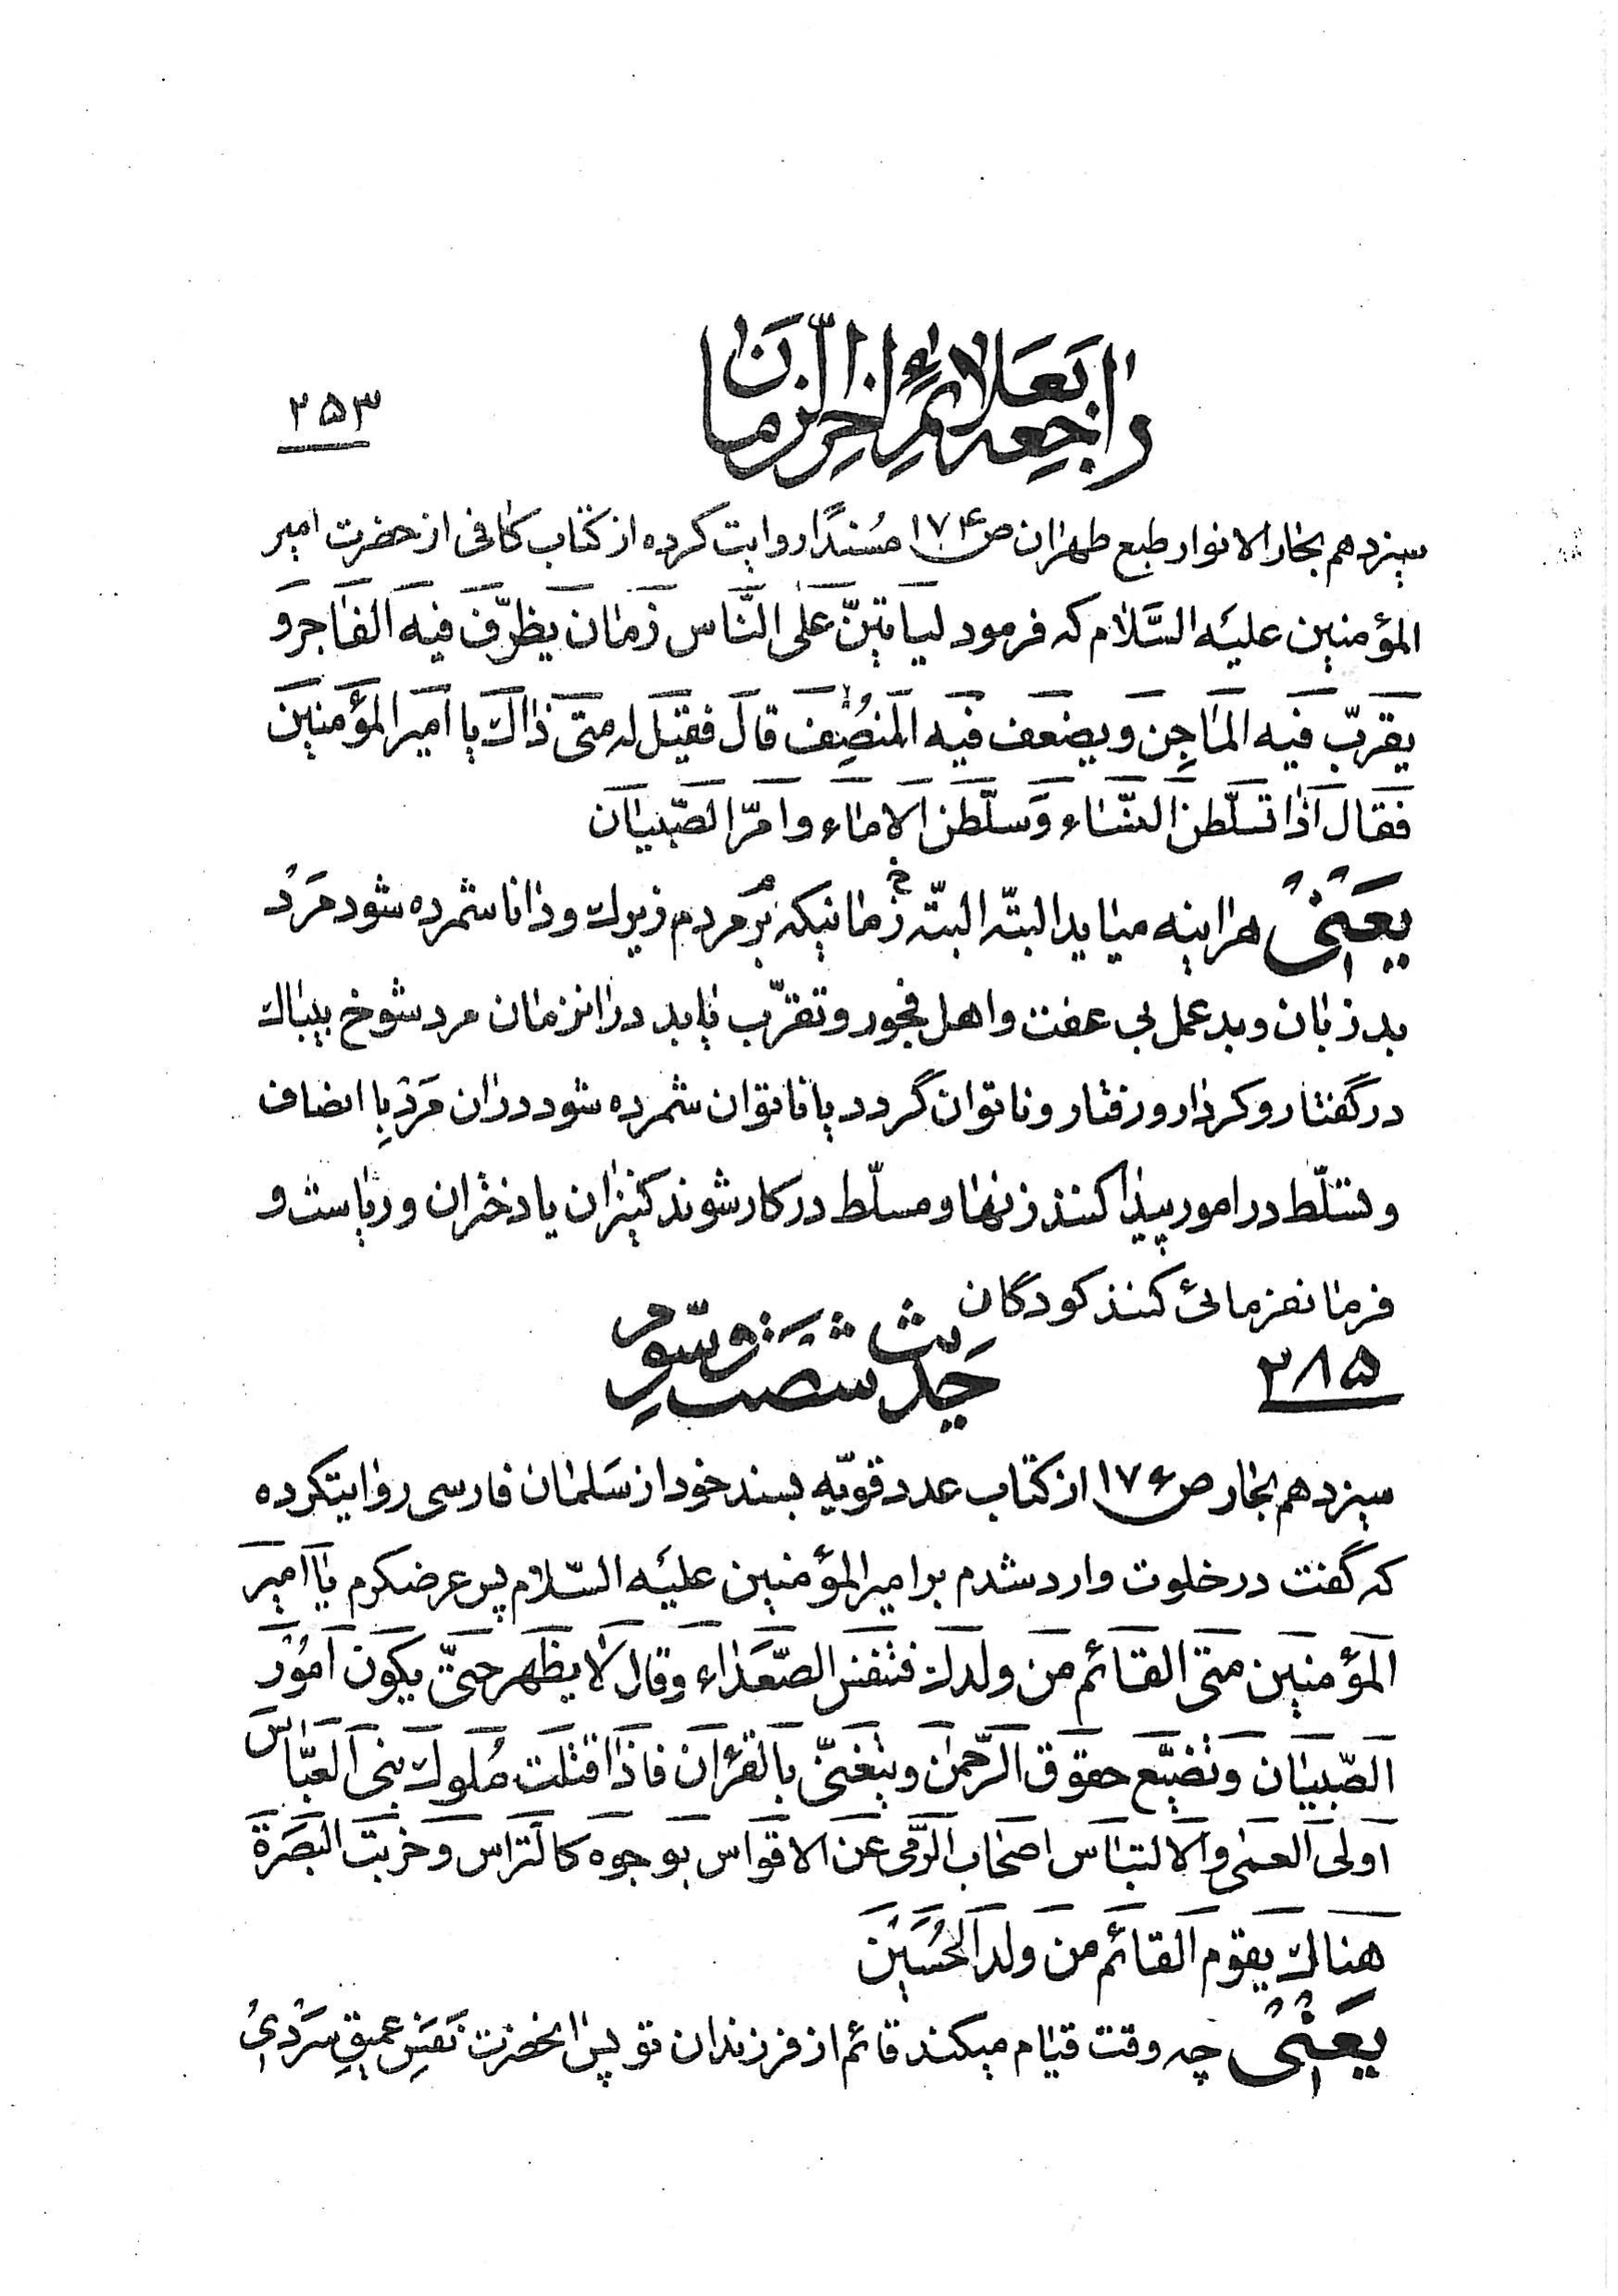 راجع بعلائم اخر الزمان
۲۵۳
سیزدهم بحار الانوار طبع طهران ص ۱۷۴ مُسنَدًا روایت کرده از کتاب کافی از حضرت امیر
المؤمنین علیه السَّلام که فرمود لیأتینّ عَلی النّاس زَمان یظرّف فیه الفاجر و
یقرّب فیه الماجِن و یضعف فیه المنصِف قال فقیل له متی ذاك یا امیر المؤمنین
فقال اذا تسلّطن النّساء و سلّطن الاماء و امّر الصّبیان
یَعنی هر اینه میاید البتّه البتّه زمانیکه بر مردم زیرك و دانا شمرده شود مَرد
بد زبان و بد عمل بی عفت و اهل فجور و تقرّب یابد در انزمان مرد شوخ بیباك
در گفتار و کردار و رفتار و ناتوان گردد یا ناتوان شمرده شود در ان مَردِ با انصاف
و تسلّط در امور پیدا کنند زنها و مسلّط در کار شوند کنیزان یا دختران و ریاست و
فرمانفرمائی کنند کودکان
۲۸۵
حَدیث شصَت وَ سّوم
سیزدهم بحار ص ۱۷۶ از کتاب عدد قویّه بسند خود از سَلمان فارسی روایتکرده
که گفت در خلوت وارد شدم بر امیر المؤمنین علیه السّلام پس عرضکرم یا امیر
المؤمنین متی القائم من ولدك فتنفس الصّعَداء و قال لا یظهر حتّی یکون امُور
الصّبیان و تضیّع حقوق الرّحمن و یتغنّی بالقرءان فاذا قتلت مُلوك بنی العبّاس
اولی العمی و الالتباس اصحاب الرّمی عن الاقواس بوجوه کالتراس و خربت البَصَرة
هناك یقوم القائم من ولد الحُسَین
یَعنی چه وقت قیام میکند قائم از فرزندان تو پس انحضرت نَفَسِ عمیقِ سَردی